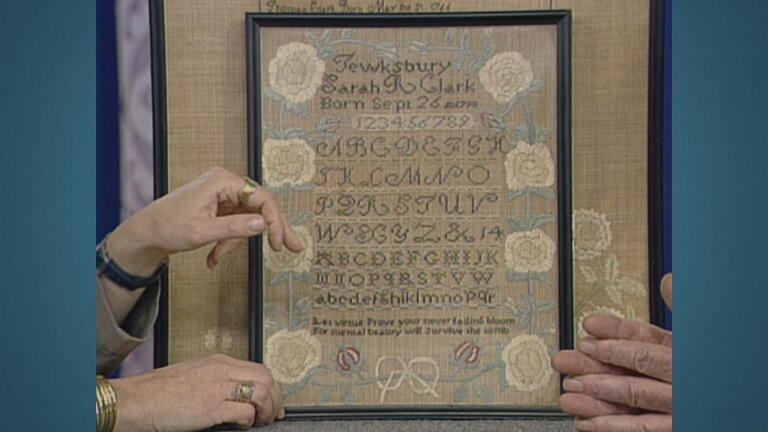 Thomas Clark Born May the 21 1766
Tewksbury
Sarah R Clark
Born Sept 26
123456789
ABCDEFGH
IKLMNO
PQRSTUV
WXYZ& 14
ABCDEFGHIJK
OPQRSTVW
abcdefghiklmnopqr
Let virtue Prove your never fading bloom
For mental beauty will Survive the tomb